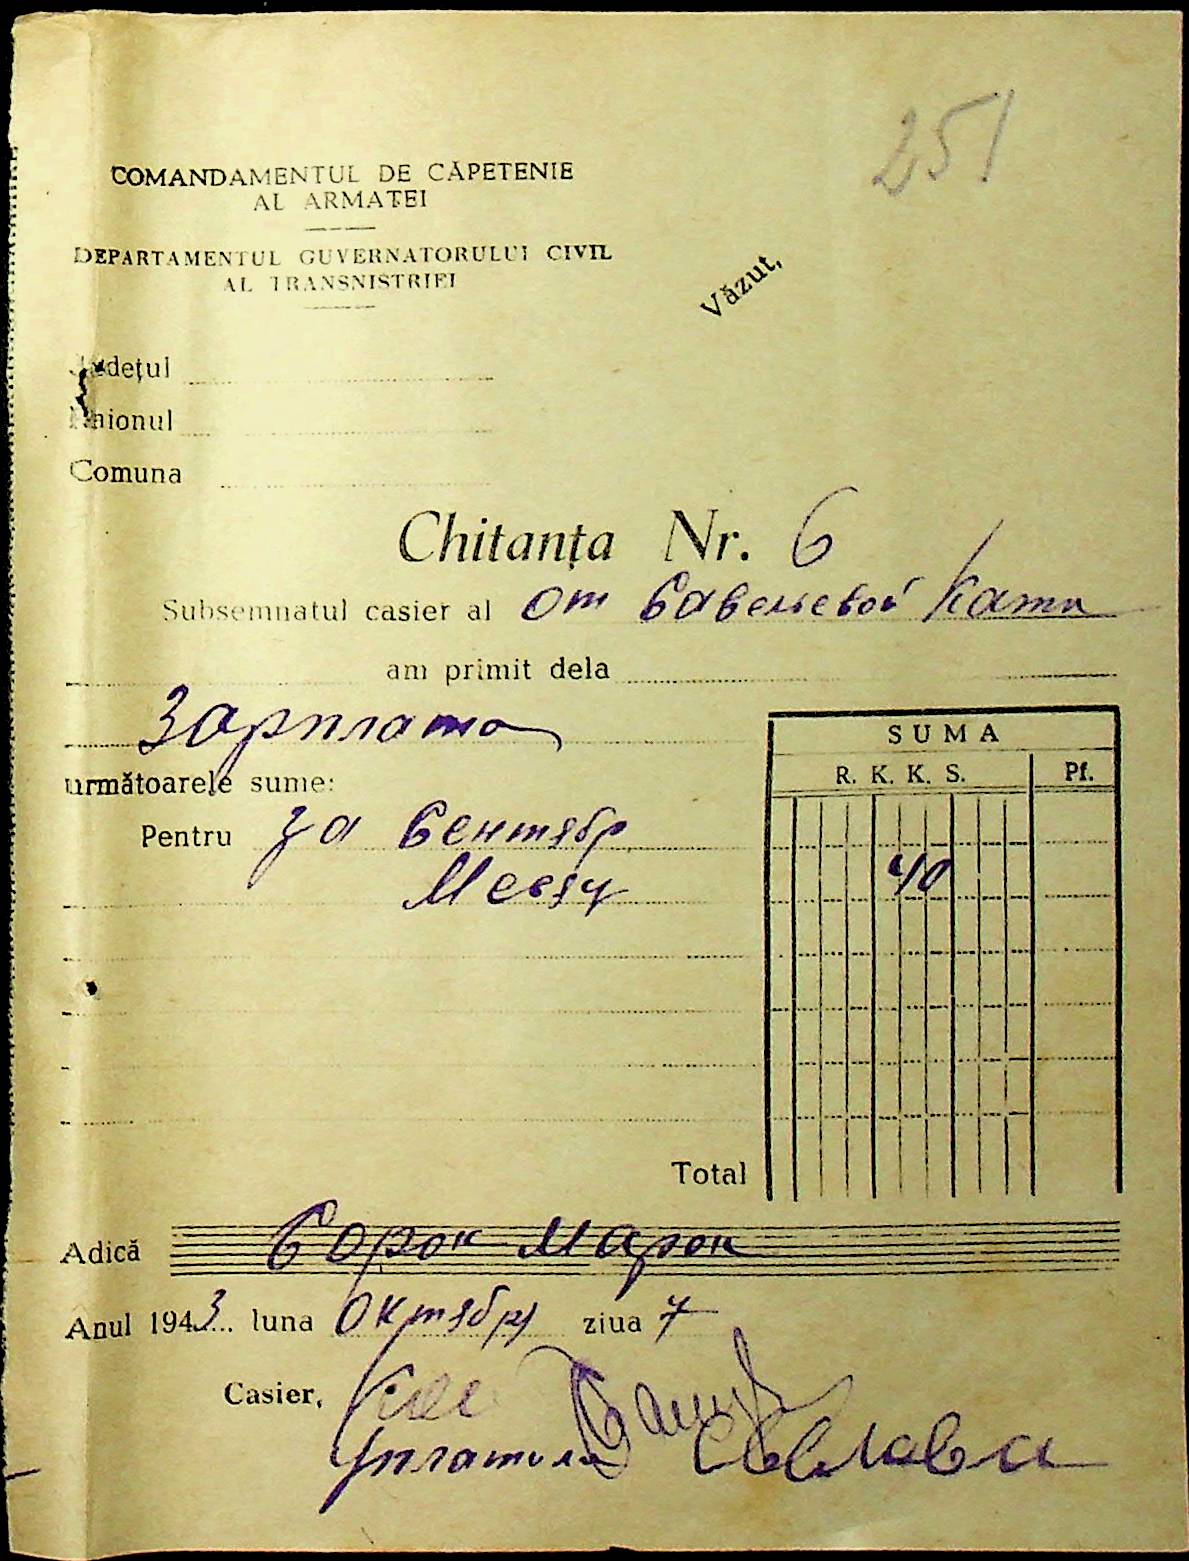 251
COMANDAMENTUL DE CĂPETENIE
AL ARMATEI
DEPARTAMENTUL GUVERNATORULUI CIVIL
AL TRANSNISTRIEI
Văzut,
Județul
Raionul
Comuna
Chitanța Nr. 6
Subsemnatul casier al от Савельевой Кати
am primit dela
Зарплата
următoarele sume:
SUMA
R. K. K. S. Pf.
Pentru за Сентябр
Месяц
40
Total
Adică Сорок Марок
Anul 1943... luna Октябрь ziua 7
Casier,
Уплатила